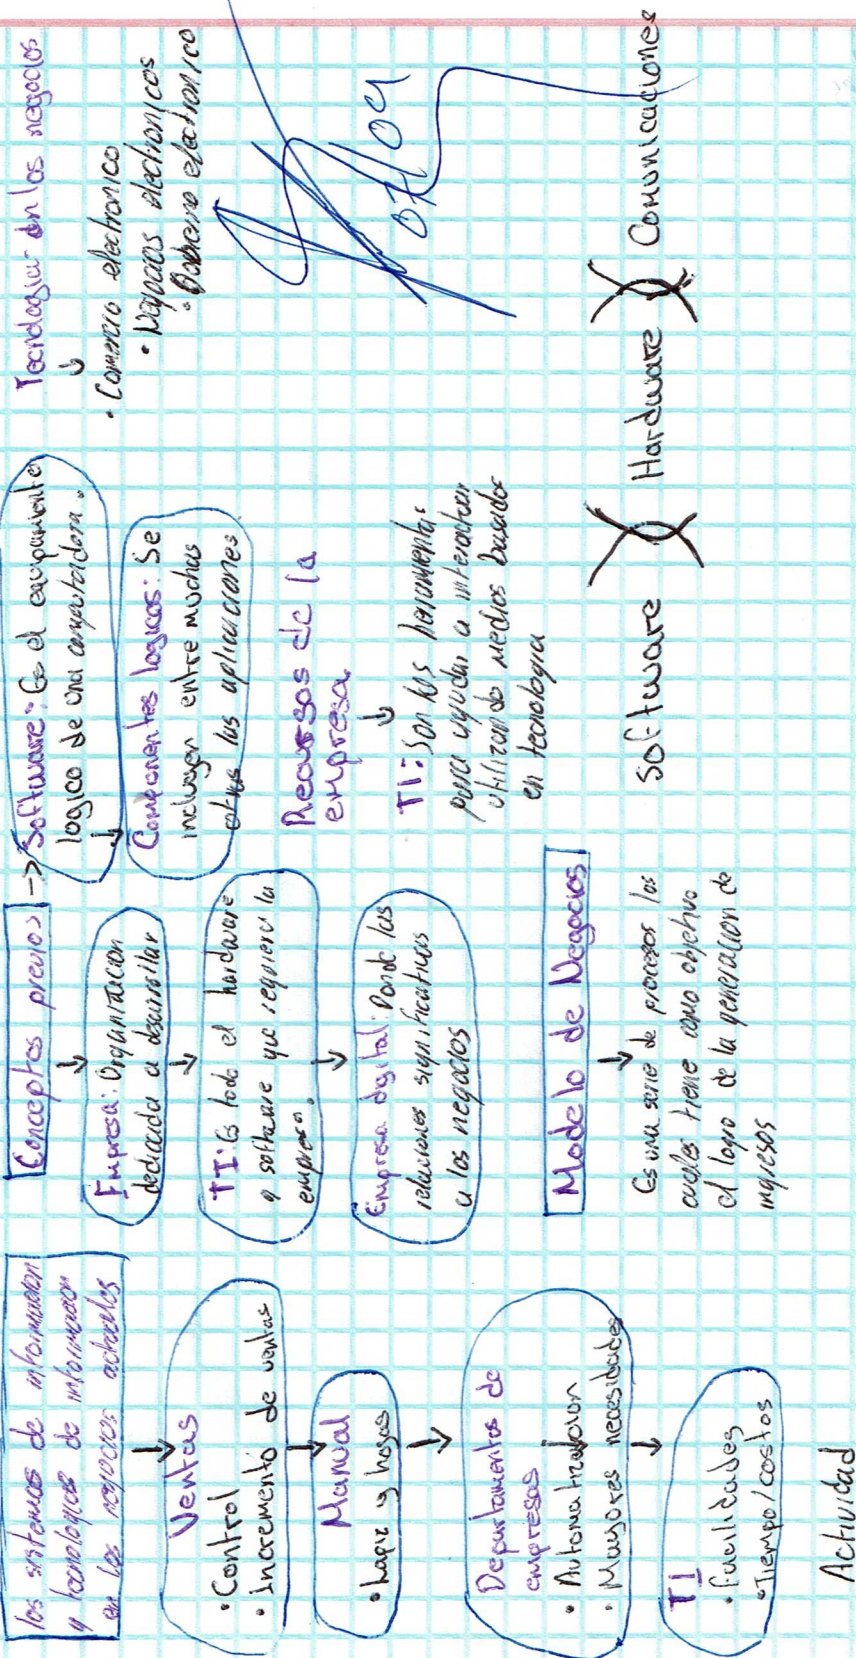 los sistemas de informacion
y tecnologias de informacion
en los negocios actuales
Ventas
• Control
• Incremento de ventas
Manual
• Lapiz y hojas
Departamentos de
empresas
• Automatizacion
• Mayores necesidades
TI
• Facilidades
• Tiempo/costos
Actividad
Conceptos previos
Empresa: Organizacion
dedicada a desarrollar
TI: Es todo el hardware
y software que requiera la
empresa.
Empresa digital: Donde las
relaciones significativas
a los negocios
Modelo de Negocios
Es una serie de procesos los
cuales tiene como objetivo
el logro de la generacion de
ingresos
Software: Es el equipamiento
logico de una computadora.
Componentes logicos: Se
incluyen entre muchas
otras las aplicaciones
Recursos de la
empresa
TI: Son las herramientas
para ayudar a interactuar
utilizando medios basados
en tecnologia
Software Hardware Comunicaciones
Tecnologias en los negocios
• Comercio electronico
• Negocios electronicos
• Gobierno electronico